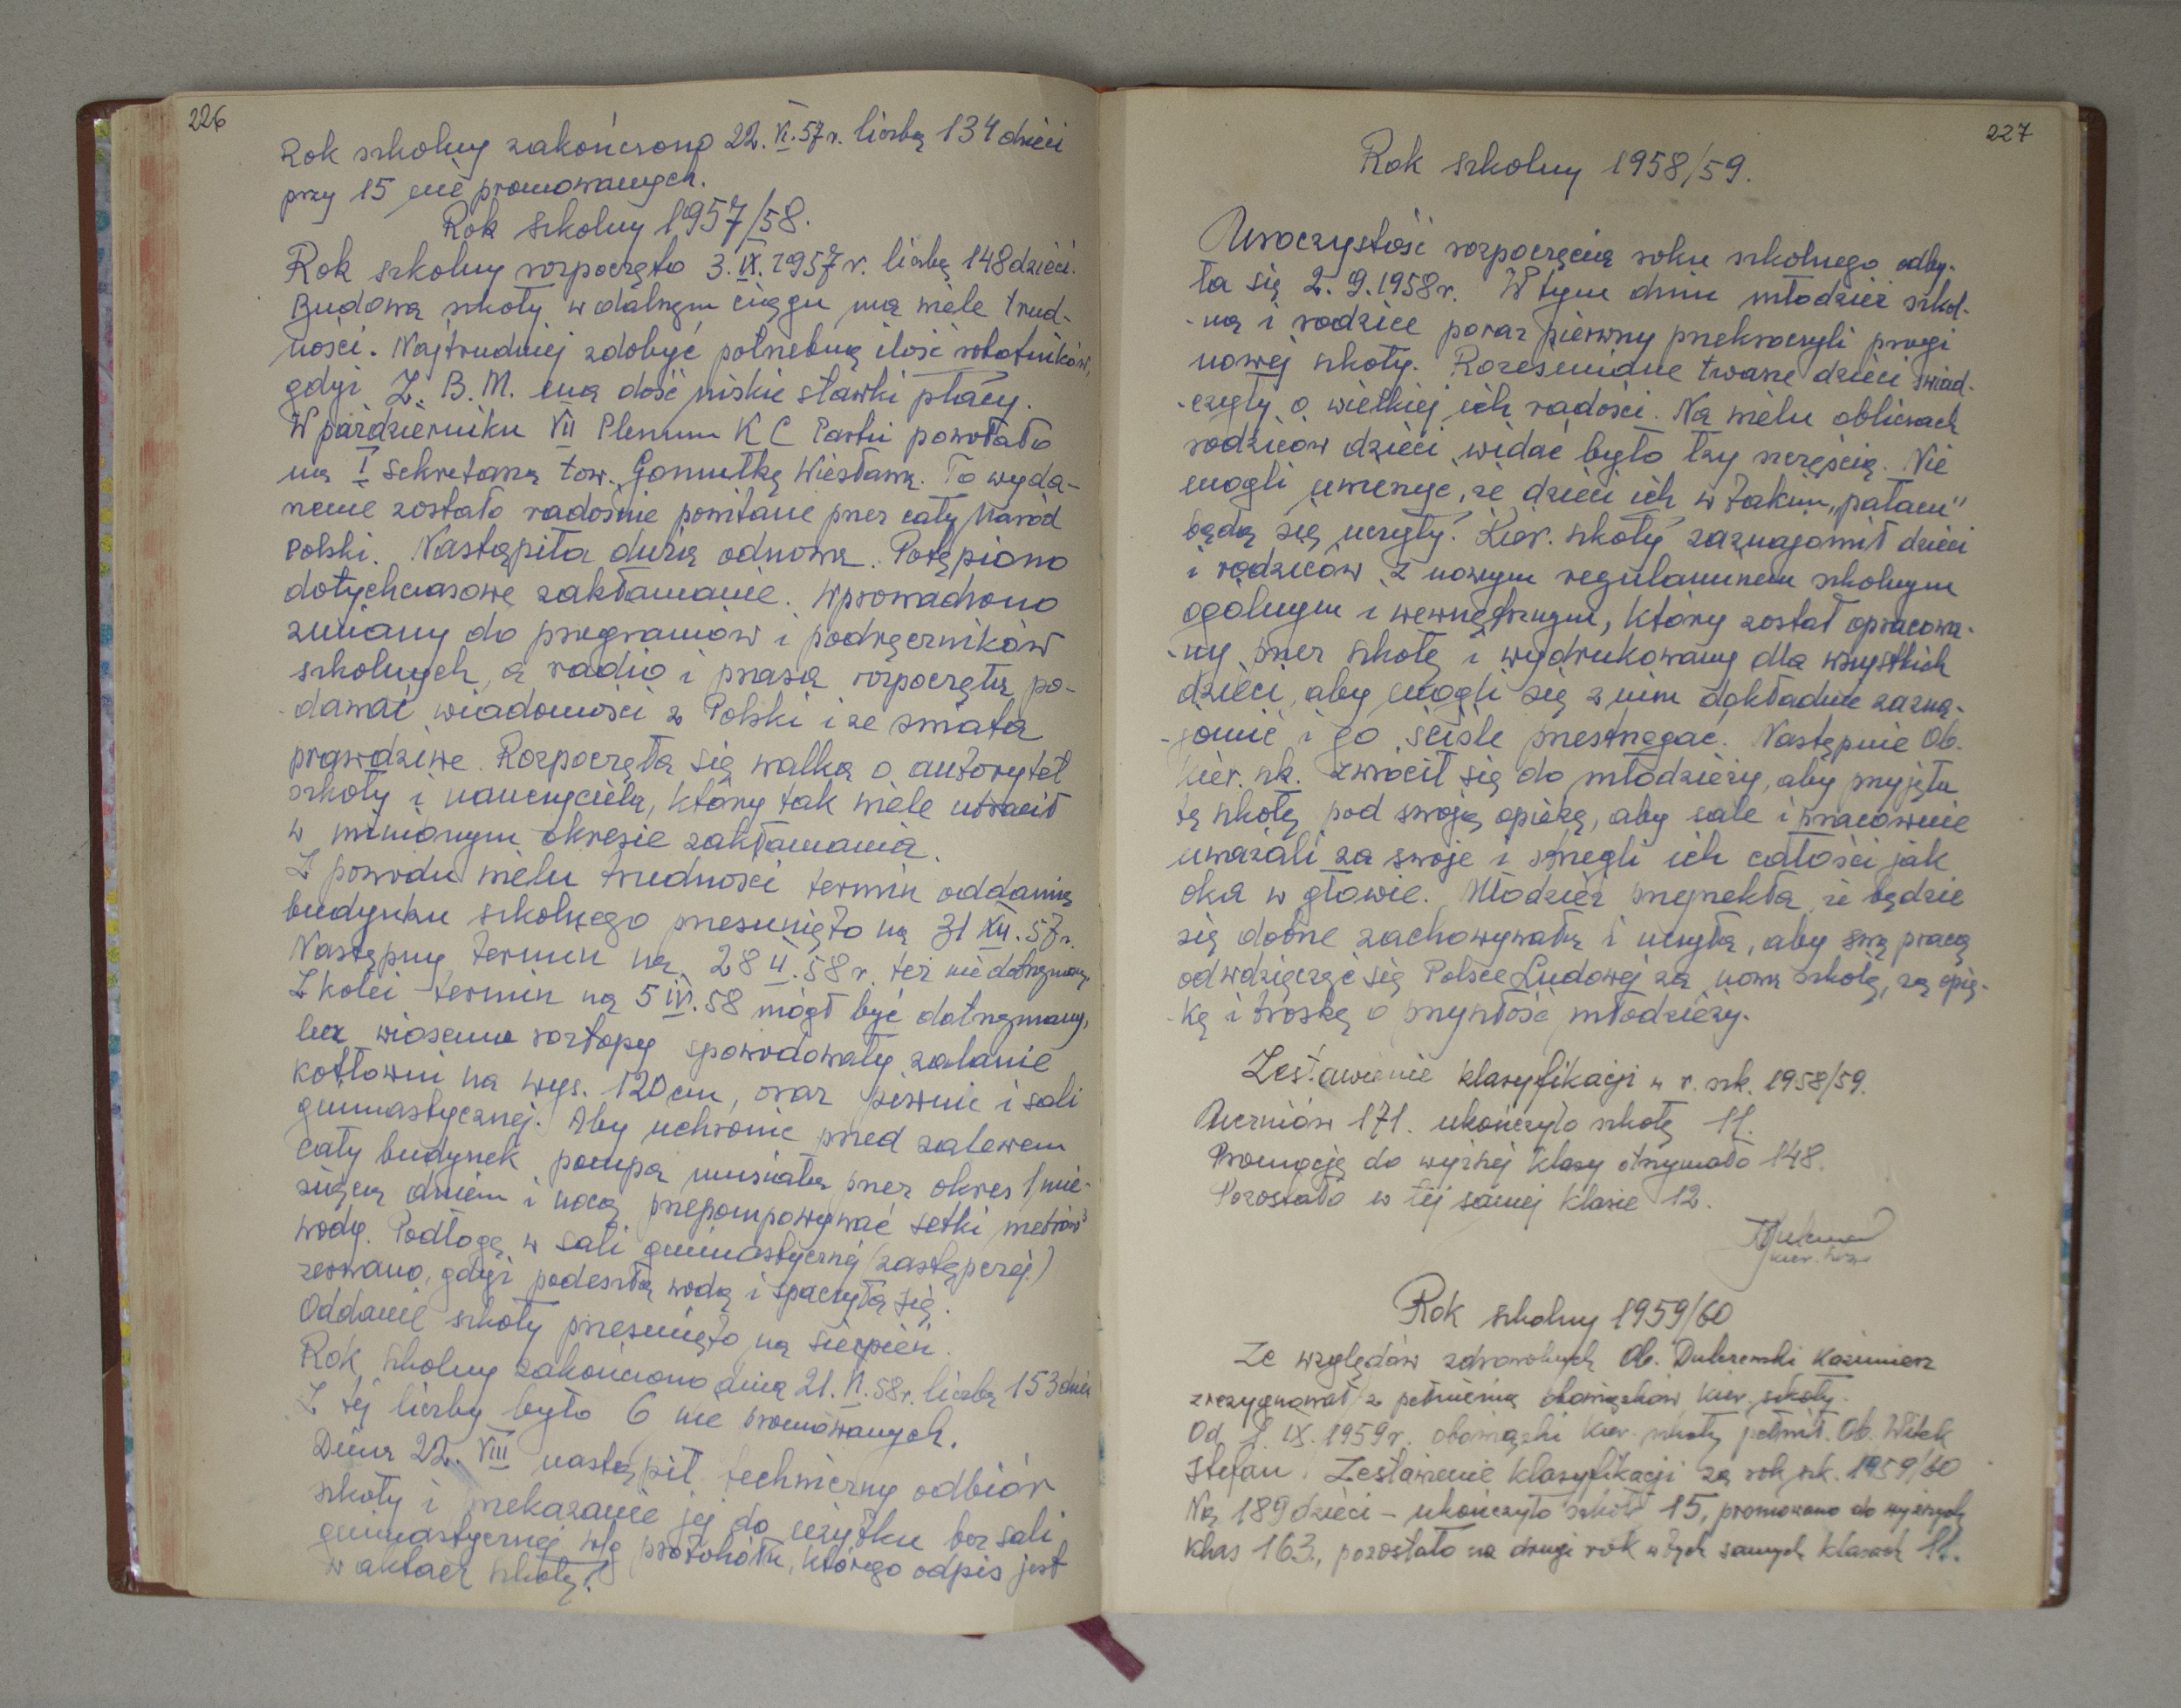 226
Rok szkolny zakończono 22.VI.57r. liczbą 134 dzieci
przy 15 nie promowanych.
Rok szkolny 1957/58.
Rok szkolny rozpoczęto 3.IX.1957r. liczbą 148 dzieci.
Budowa szkoły w dalszym ciągu ma wiele trud-
ności. Najtrudniej zdobyć potrzebną ilość robotników,
gdyż Z.B.M. ma dość niskie stawki płacy.
W październiku VII Plenum K C Partii powołało
na I sekretarza tow. Gomułkę Wiesława. To wyda-
rzenie zostało radośnie powitane przez cały Naród
Polski. Nastąpiła duża odnowa. Potępiono
dotychczasowe zakłamanie. Wprowadzono
zmiany do programów i podręczników
szkolnych, a radio i prasa rozpoczęła po-
dawać wiadomości z Polski i ze świata
prawdziwe. Rozpoczęła się walka o autorytet
szkoły i nauczyciela, który tak wiele utracił
w minionym okresie zakłamania.
Z powodu wielu trudności termin oddania
budynku szkolnego przesunięto na 31 XII.57r.
Następny termin na 28 II.58r. też nie dotrzymany.
Z kolei termin na 5 IV.58 mógł być dotrzymany,
lecz wiosenne roztopy spowodowały zalanie
kotłowni na wys. 120 cm, oraz piwnic i sali
gimnastycznej. Aby uchronić przed zalewem
cały budynek pompa musiała przez okres 1 mie-
siąca dniem i nocą przepompowywać setki metrów³
wody. Podłogę w sali gimnastycznej (zastępczej)
zerwano, gdyż podeszła wodą i spaczyła się.
Oddanie szkoły przesunięto na sierpień.
Rok szkolny zakończono dnia 21.VI.58r. liczbą 153 dzieci
Z tej liczby było 6 nie promowanych.
Dnia 22. VIII nastąpił techniczny odbiór
szkoły i przekazanie jej do użytku bez sali
gimnastycznej wg protokółu, którego odpis jest
w aktach szkoły.
227
Rok szkolny 1958/59.
Uroczystość rozpoczęcia roku szkolnego odby-
ła się 2.9.1958r. W tym dniu młodzież szkol-
-na i rodzice poraz pierwszy przekroczyli progi
nowej szkoły. Roześmiane twarze dzieci świad-
-czyły o wielkiej ich radości. Na wielu obliczach
rodziców dzieci widać było łzy szczęścia. Nie
mogli uwierzyć, że dzieci ich w takim „pałacu”
będą się uczyły. Kier. szkoły zaznajomił dzieci
i rodziców z nowym regulaminem szkolnym
ogólnym i wewnętrznym, który został opracowa-
-ny przez szkołę i wydrukowany dla wszystkich
dzieci, aby mogli się z nim dokładnie zazna-
-jomić i go ściśle przestrzegać. Następnie Ob.
kier. szk. zwrócił się do młodzieży, aby przyjęła
tą szkołę pod swoją opiekę, aby sale i pracownie
uważali za swoje i strzegli ich całości jak
oka w głowie. Młodzież przyrzekła, że będzie
się dobrze zachowywała i uczyła, aby swą pracą
odwdzięczyć się Polsce Ludowej za nową szkołę, za opie-
-kę i troskę o przyszłość młodzieży.
Zestawienie klasyfikacji w r. szk. 1958/59.
Uczniów 171. ukończyło szkołę 11.
Promocję do wyższej klasy otrzymało 148.
Pozostało w tej samej klasie 12.
Rok szkolny 1959/60
Ze względów zdrowotnych Ob. Kazimierz
zrezygnował z pełnienia obowiązków kier. szkoły.
Od 1.IX.1959r. obowiązki kier. szkoły pełnił Ob. Witek
Stefan. Zestawienie klasyfikacji za rok szk. 1959/60
Na 189 dzieci - ukończyło szkołę 15, promowano do wyższych
klas 163, pozostało na drugi rok w tych samych klasach 11.